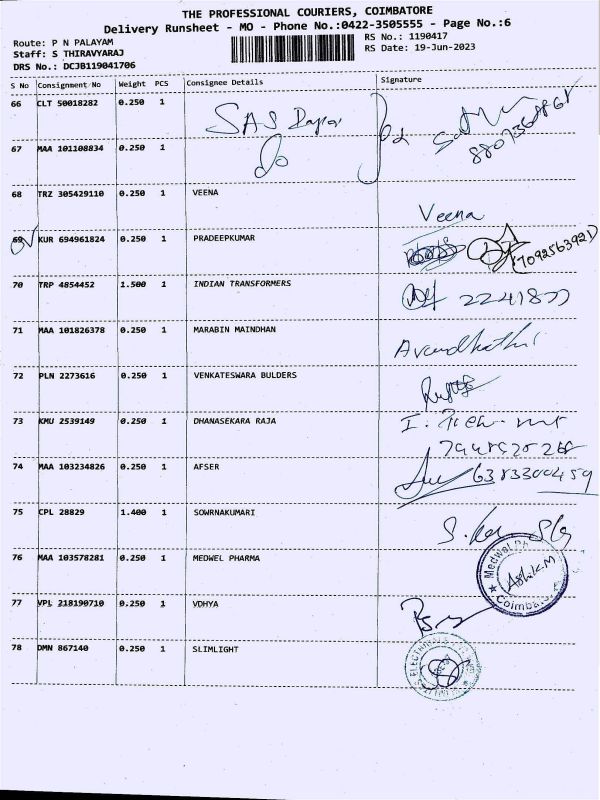 THE PROFESSIONAL COURIERS, COIMBATORE
Delivery Runsheet - MO - Phone No.:0422-3505555 - Page No.:6
Route: P N PALAYAM
RS No.: 1190417
Staff: S THIRAVYARAJ
RS Date: 19-Jun-2023
DRS No.: DCJB119041706
S No Consignment No Weight PCS Consignee Details Signature
66 CLT 50018282 0.250 1 SAS
67 MAA 101108834 0.250 1 Do
68 TRZ 305429110 0.250 1 VEENA Veena
69 KUR 694961824 0.250 1 PRADEEPKUMAR 7092563921
70 TRP 4854452 1.500 1 INDIAN TRANSFORMERS
71 MAA 101826378 0.250 1 MARABIN MAINDHAN
72 PLN 2273616 0.250 1 VENKATESWARA BULDERS
73 KMU 2539149 0.250 1 DHANASEKARA RAJA
74 MAA 103234826 0.250 1 AFSER 6383300459
75 CPL 28829 1.400 1 SOWRNAKUMARI
76 MAA 103578281 0.250 1 MEDWEL PHARMA Medwel Ashik.M
77 VPL 218190710 0.250 1 VDHYA
78 DMN 867140 0.250 1 SLIMLIGHT